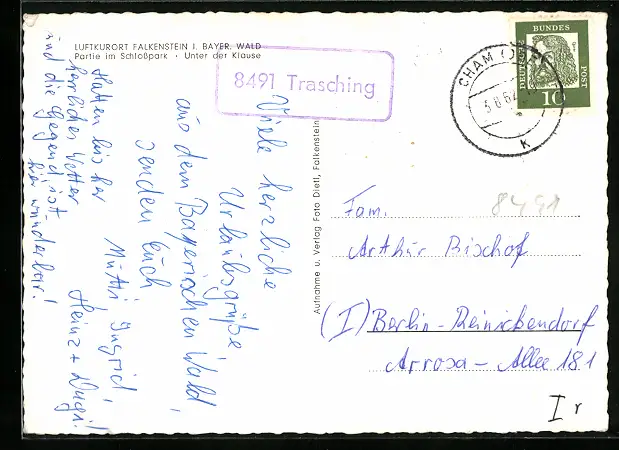 LUFTKURORT FALKENSTEIN I. BAYER. WALD
Partie im Schloßpark · Unter der Klause
8491 Trasching
Viele herzliche
Urlaubsgrüße,
aus dem Bayerischen Wald,
senden Euch
Mutti, Ingrid,
Heinz +
Hatten bis her
herrliches Wetter
und die Gegend ist
hier wunderbar!
Aufnahme u. Verlag Foto Dietl, Falkenstein
CHAM
K
DEUTSCHE
BUNDES
POST
10
8491
Fam.
Arthur Bischof
(I) Berlin-Reinickendorf
Arrosa-Allee 181
I r